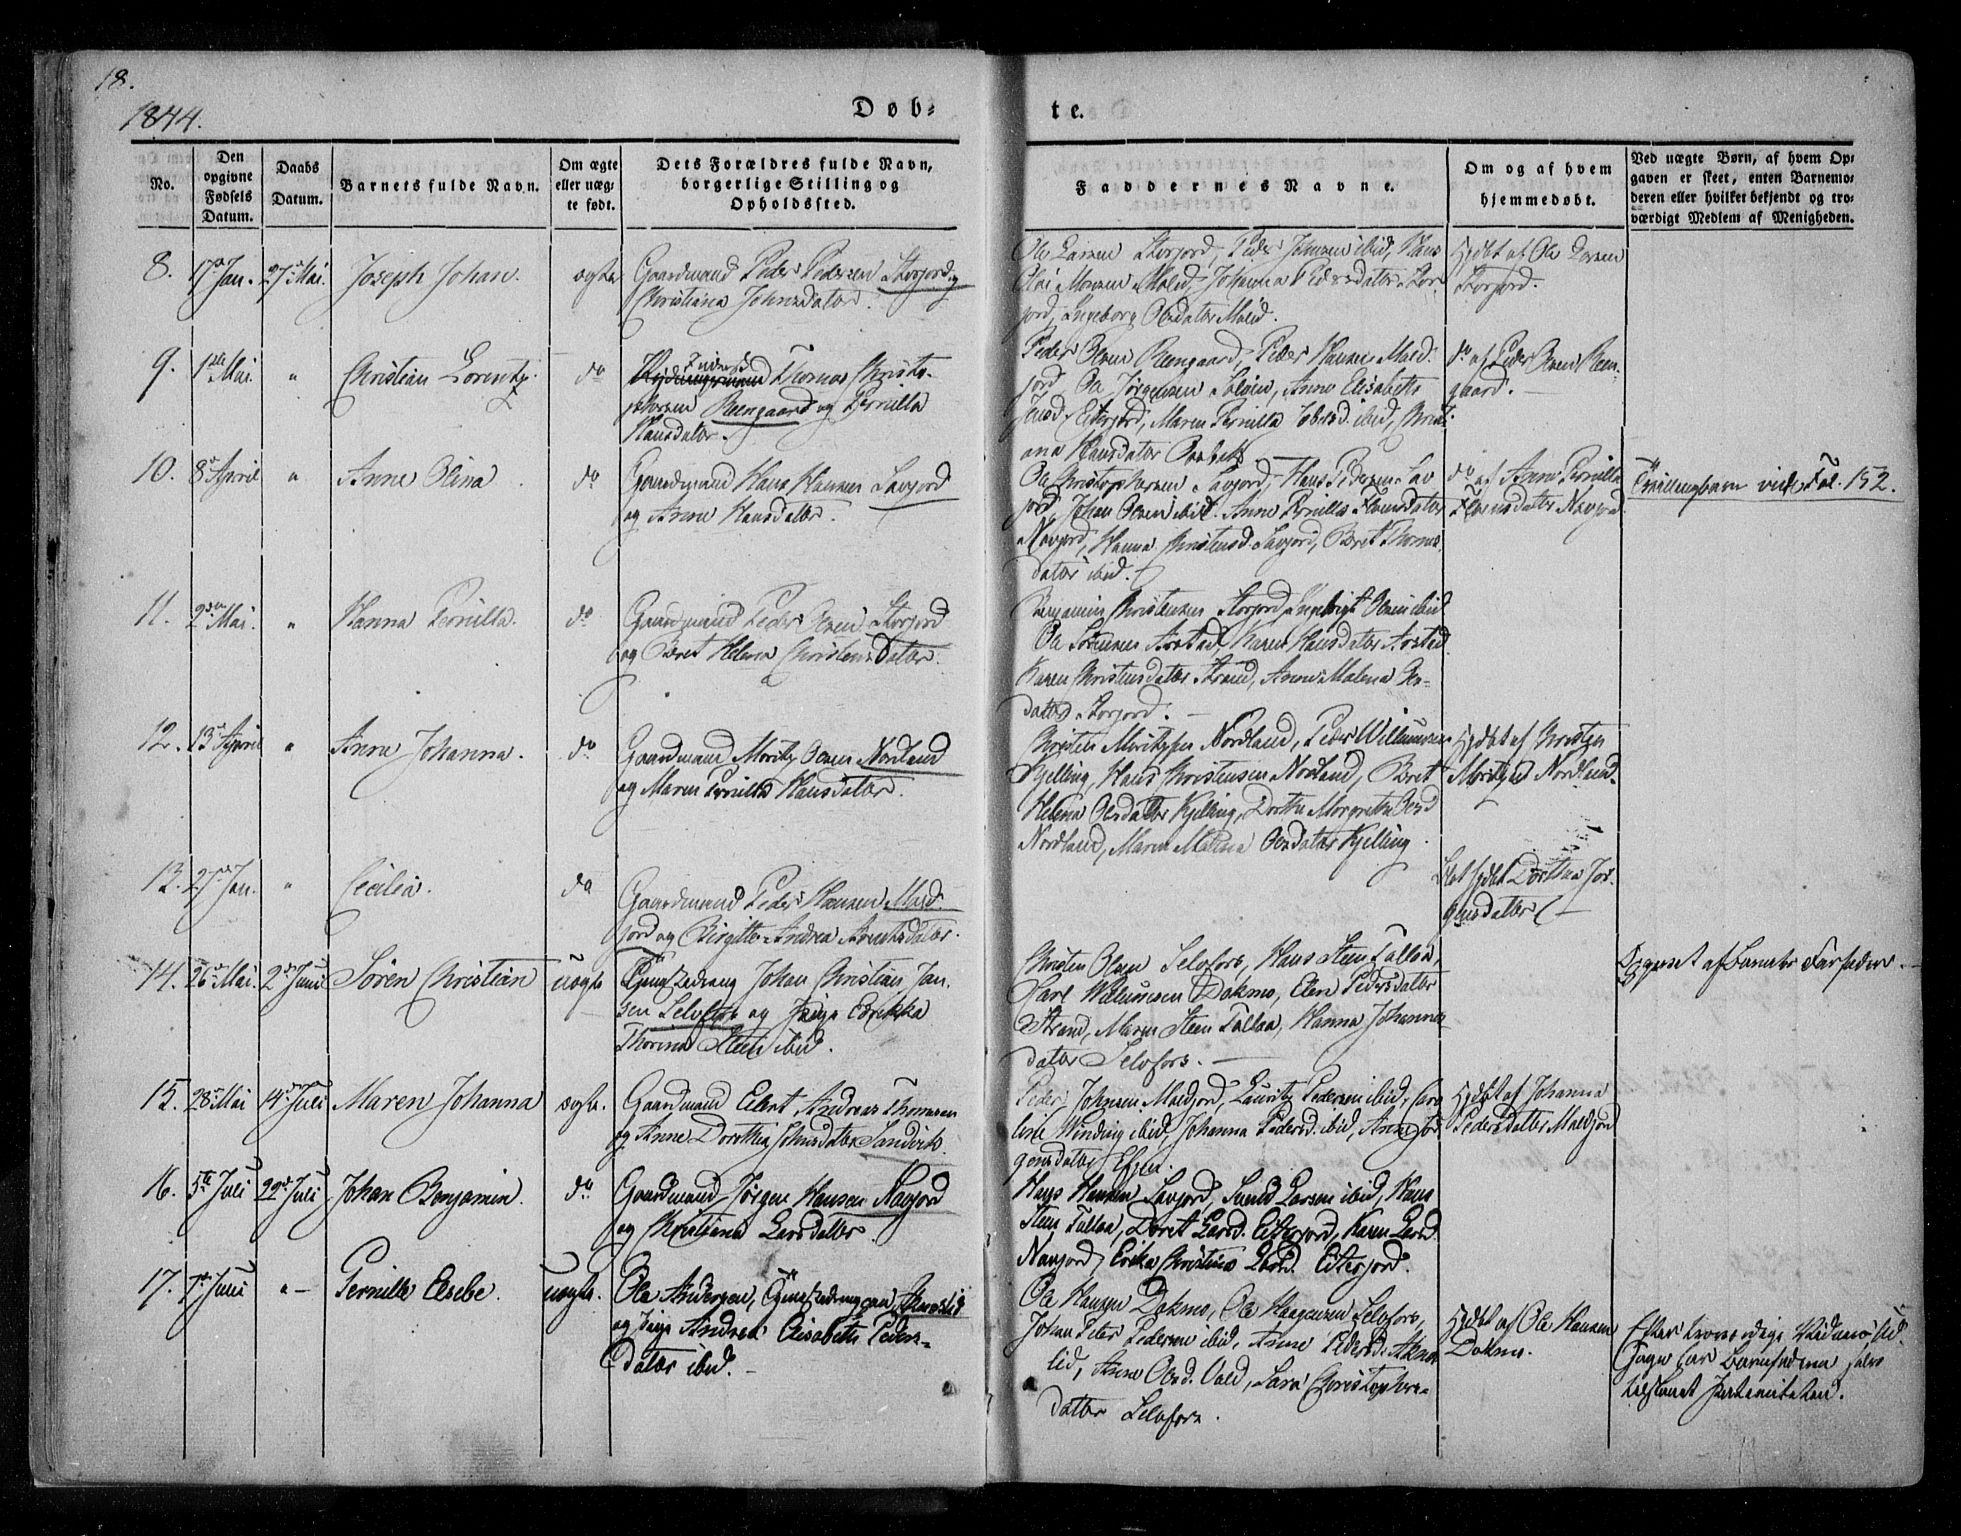 18.
1844.
Døb-
te.
No.
Den opgivne Fødsels Datum.
Daabs Datum.
Barnets fulde Navn.
Om ægte eller uæg-te født.
Dets Forældres fulde Navn, borgerlige Stilling og Opholdssted.
Faddernes Navne.
Om og af hvem hjemmedøbt.
Ved uægte Børn, af hvem Op-
gaven er skeet, enten Barnemo-
deren eller hvilket bekjendt og tro-
værdigt Medlem af Menigheden.
8. 17 Jan. 27 Mai. Joseph Johan. ægte
Gaardmand Peder Pedersen Storjord og
Christiana Johnsdatter.
Ole Larsen Storjord, Peder Johnsen ibid, Hans
Olai Monsen Molid, Johanna Pedersdatter Stor-
jord, Ingeborg Olsdatter Molid.
Hjdbt af Ole Larsen
Storjord.
9. 1ste Mai. " Christian Lorentz. do
Thomas Christo-
phersen Reengaard og Pernilla
Hansdatter.
Peder Olsen Reengaard, Peder Hansen Mald-
jord, Ole Jørgensen, Anne Elisabeth
Jensd. Eiterjord, Maren Pernilla ibid, Christi-
ana Hansdatter
do af Peder Olsen Reen-
gaard.
10. 8de April " Anne Olina do
Gaardmand Hans Hansen Savjord
og Anne Hansdatter.
Ole Christophersen Savjord, Hans Pedersen Sav-
jord, Johan Olsen ibid. Anne Pernilla
Navjord, Hanna Christensd. Savjord, Beret Thomas-
datter ibid.
do af Anne Pernilla
Navjord
Tvillingbarn vide Fol. 152.
11. 2den Mai. " Hanna Pernilla. do
Gaardmand Peder Olsen Storjord
og Beret Helena Christensdatter.
Benjamin Christensen Storjord, Ingebrigt Olsen ibid
Ole Sørensen Arstad, Karen Hansdatter Arstad
Karen Christensdatter Strand, Anne Malena Ols-
datter Storjord.
12. 13de April " Anna Johanna. do
Gaardmand Moritz Olsen Nordland
og Maren Pernilla Hansdatter.
Christen Moritzsen Nordland, Peder Willumsen
Kjelling, Hans Christensen Nordland, Beret
Helena Olsdatter Kjelling, Dorthea Margrethe Olsd
Nordland, Maren Malena Olsdatter Kjelling.
Hjdbt af Christen
Moritzen Nordland.
13. 27de Jan. " Cecilia. do
Gaardmand Peder Hansen Mald-
jord og Birgitte Andrea Arentsdatter.
hjdbt Dorthea Jør-
gensdatter
14. 26de Mai. 2den Juni Søren Christian uægte
Johan Christian Jan-
sen Selvfors og Pige Edrikka
Thorina Steen ibid.
Christen Olsen Selvfors, Hans Steen Tollaa,
Carl Willumsen Dokmo, Elen Pedersdatter
Strand, Maren Steen Tollaa, Hanna Johannes-
datter Selvfors.
Opgivet af Barnets Farfader.
15. 28de Mai 14de Juli Maren Johanna ægte.
Gaardmand Elert Andreas Thomsen
og Anne Dorothea Johnsdatter Sandvik.
Peder Johnsen Maldjord, Lauritz Pedersen ibid, Caro-
line Winding ibid, Johanna Pedersd. ibid, Anne Jør-
gensdatter
Hjdbt af Johanna
Pedersdatter Maldjord
16. 5te Juli 22de Juli Johan Benjamin. do
Gaardmand Jørgen Hansen Navjord
og Christiana Larsdatter
Hans Hansen Savjord, Larsen ibid, Hans
Steen Tollaa, Beret Larsd. Eiterjord, Karen Larsd.
Navjord, Erika Christina Larsd. Eiterjord.
17. 7de Juni " Pernille Elsebe. uægte.
Ole Andersen,
og Pige Andrea Elisabeth Peders-
datter ibid.
Ole Hansen Dokmo, Ole Haagensen Selvfors,
Johan Peter Pedersen ibid, Anne Pedersd.
lid, Anne Olsd. Vold, Sara Christophers-
datter Selvfors.
Hjdbt af Ole Hansen
Dokmo.
Efter troværdige
har Barnefaderen selv
tilstaaet Paterniteten.